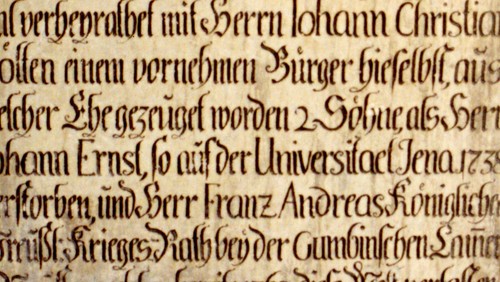 verheyrathet mit Herrn Johann Christia
einem vornehmen Bürger hieselbst, aus
elcher Ehe gezeuget worden 2 Söhne, als Herr
ohann Ernst, so auf der Universitaet Jena 173
erstorben, und Herr Franz Andreas Königliche
Preußl: Krieges Rath bey der Gumbinschen